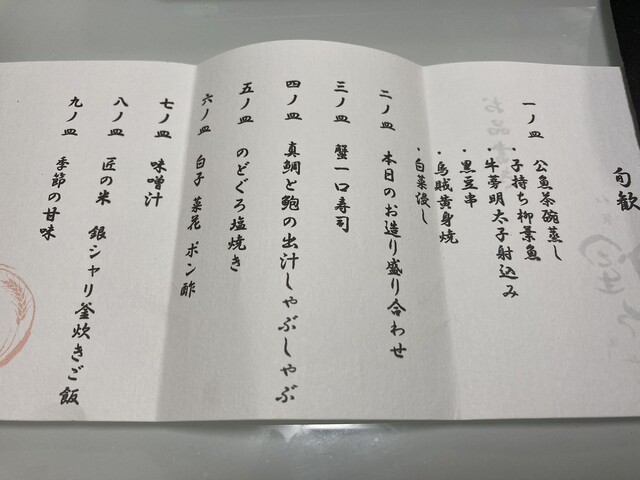 旬歓
一ノ皿　公魚茶碗蒸し
・子持ち柳葉魚
・牛蒡明太子射込み
・黒豆串
・烏賊黄身焼
・白菜浸し
二ノ皿　本日のお造り盛り合わせ
三ノ皿　蟹一口寿司
四ノ皿　真鯛と鮑の出汁しゃぶしゃぶ
五ノ皿　のどぐろ塩焼き
六ノ皿　白子 菜花 ポン酢
七ノ皿　味噌汁
八ノ皿　匠の米　銀シャリ釜炊きご飯
九ノ皿　季節の甘味